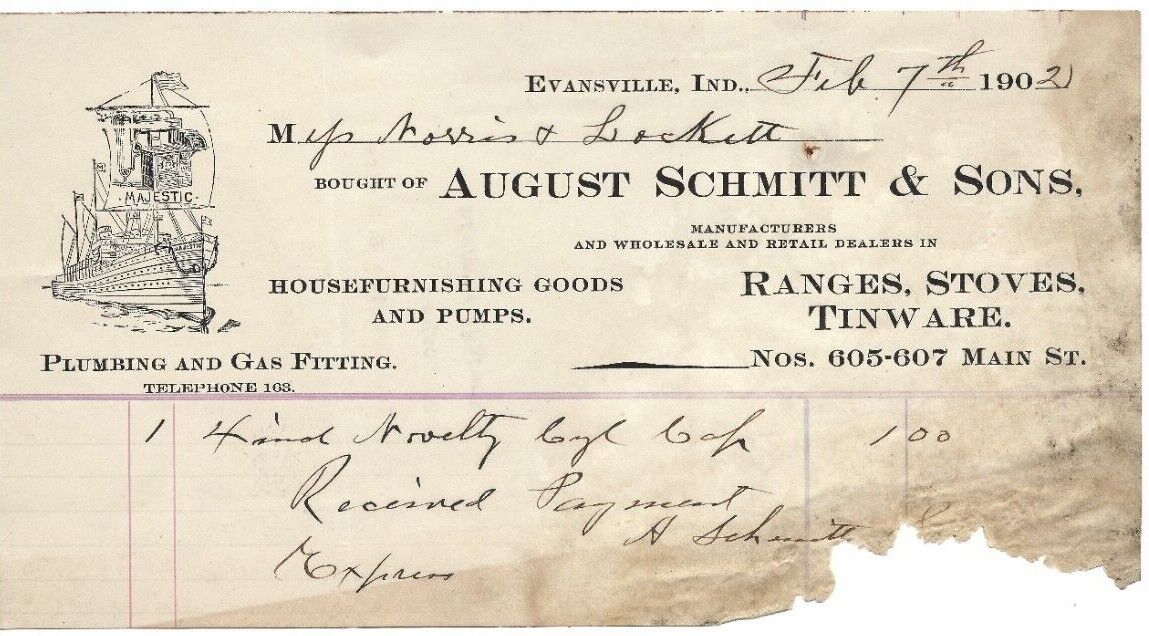 EVANSVILLE, IND., Feb. 7th 1902
Mess Norris & Lockett
BOUGHT OF AUGUST SCHMITT & SONS,
MANUFACTURERS
AND WHOLESALE AND RETAIL DEALERS IN
MAJESTIC
HOUSEFURNISHING GOODS
AND PUMPS.
RANGES, STOVES,
TINWARE.
PLUMBING AND GAS FITTING.
TELEPHONE 163.
NOS. 605-607 MAIN ST.
1 4 inch Novelty Cyl Cap 1 00
Received Payment
A Schmitt
Express